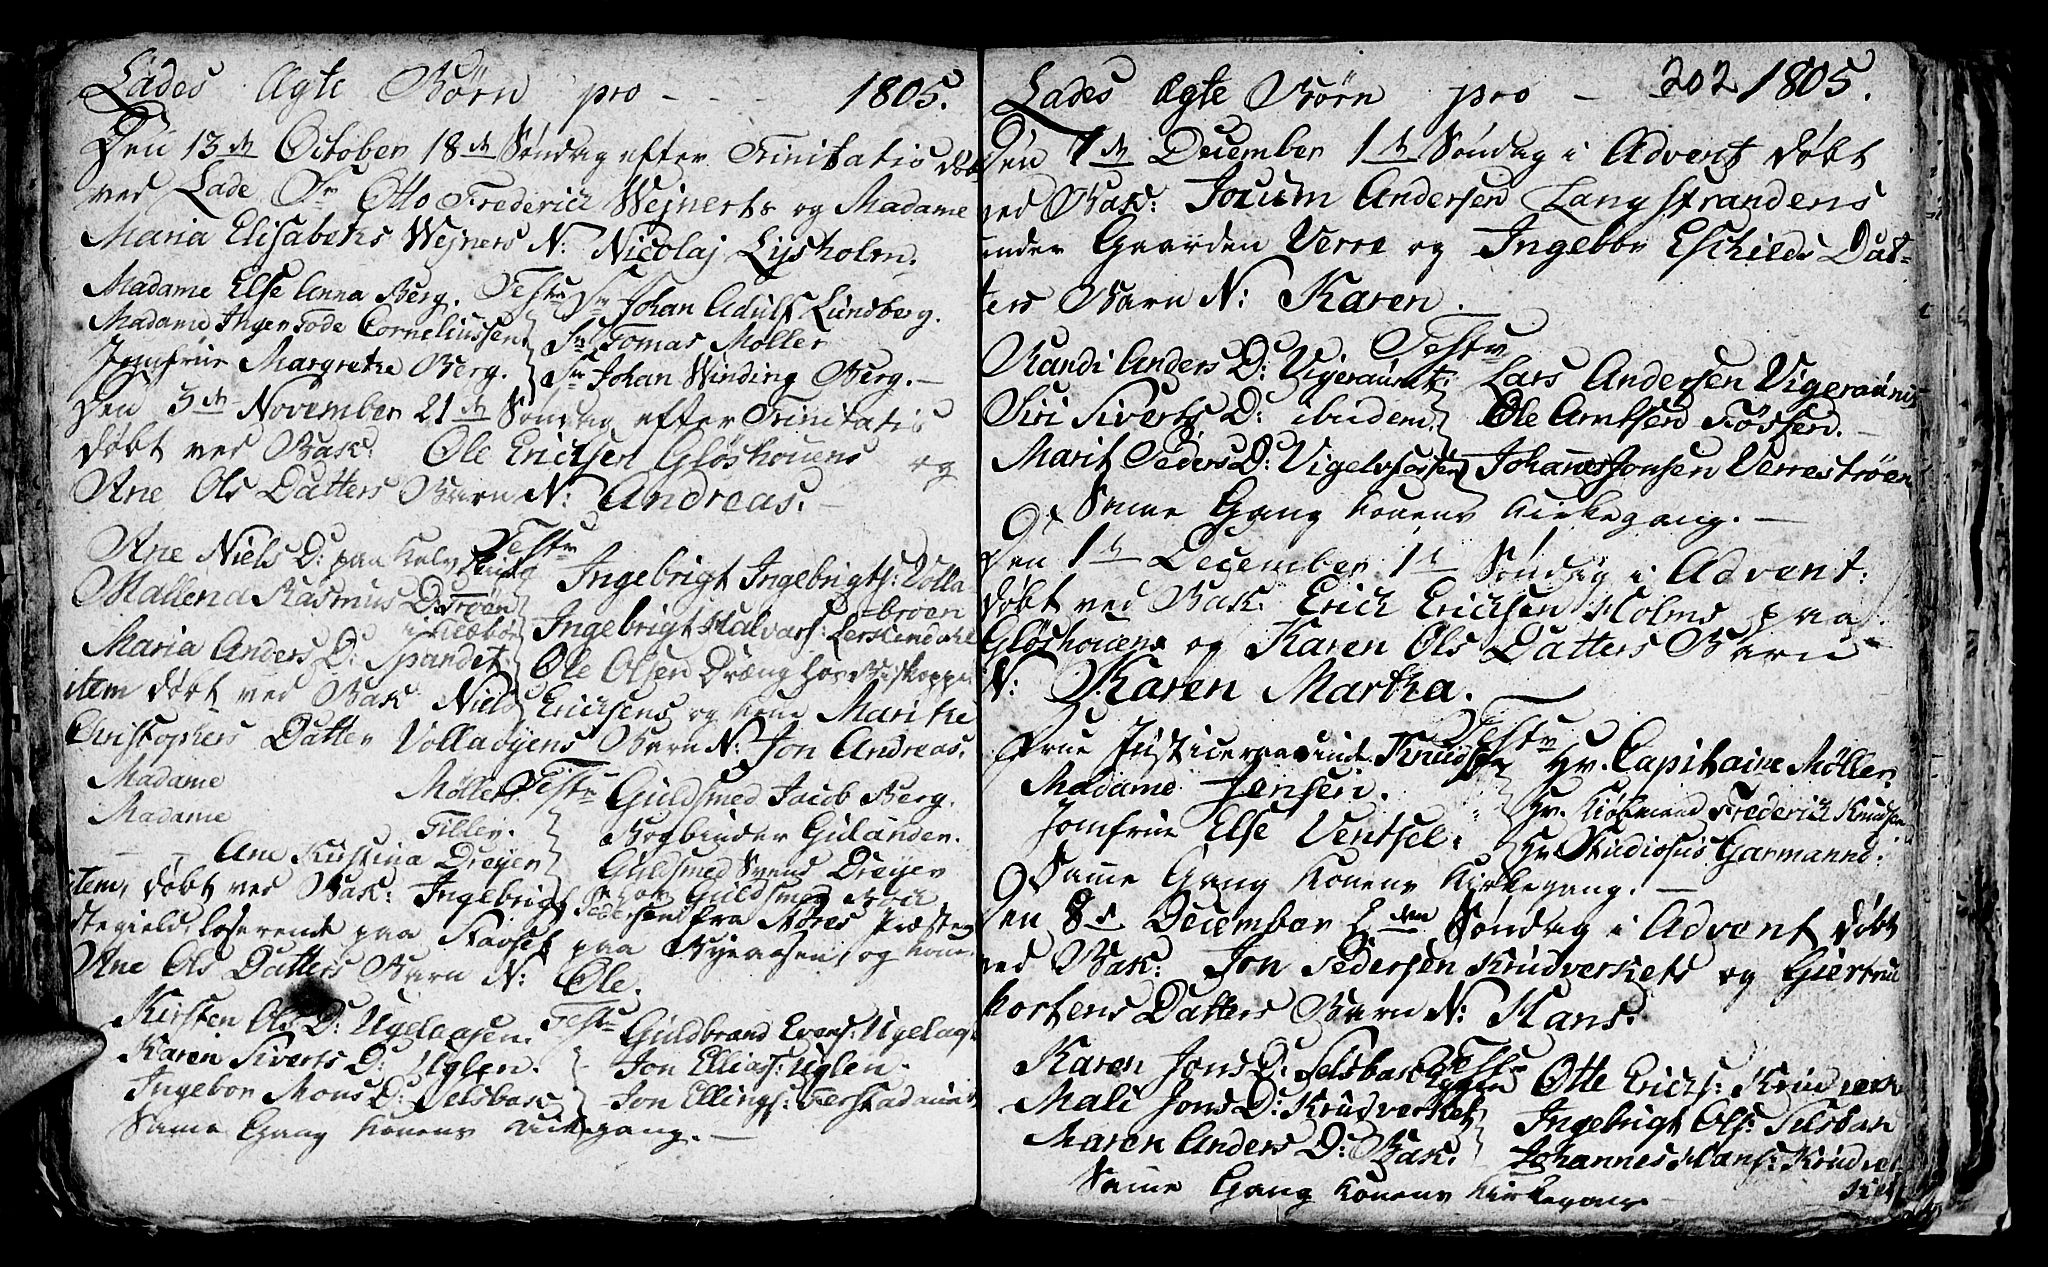 Lades Ægte Børn pro - - - 1805.
Den 13de October 18de Søndag efter Trinitatis døbt
ved Lade Sr Otto Frederich Wejnerts og Madame
Maria Elisabeths Wejners N: Nicolaj Lysholm.
Madame Else Anna Berg. Test: Sr Johan Adulf Lundberg.
Madame Inger Tode Corneliussen Sr Tomas Møller
Jomfrue Margrethe Berg. Sr Johan Winding Berg. -
Den 3de November 21de Søndag efter Trinitatis
døbt ved Bak: Ole Erichsen Gløshouens og
Ane Ols Datters Barn N: Andreas. -
Test:
Ane Niels D: paa Kalv Ingebrigt Ingebrigts: Volla
Mallena Rasmus D: Trøen -broen
i Klæbø Ingebrigt Halvars: Lerkendahl
Maria Anders D: Spandet. Ole Olsen Dræng hos Biskoppe
item døbt ved Bak Niels Erichsens og Kone Marithe
Christophers Datter Volladyens Barn N: Jon Andreas.
Madame Møller Test: Guldsmed Jacob Berg.
Madame Tilley. Bogbinder Gulander.
- - Ane Kristina Dreyer Guldsmed Svend Dreyer
Guldsmed
item, døbt ved Bak: Ingebrigt Pedersens fra Støres Præste
tegield, loserende paa Havset paa Byeaasen, og Kone
Ane Ols Datters Barn N: Ole.
Kirsten Ols D: Ugelaasen. Test: Guldbrand Evens: Ugela
Karen Siverts D: Uglen. Jon Ellias: Uglen.
Ingebor Mons D: Selsbak Jon Ellings: Ferstad
Same Gang Konens Kirkegang. -
202
Lades Ægte Børn pro - 1805.
Den 1de December 1de Søndag i Advent døbt
ved Bak: Jocum Andersen Langstrandens
under Gaarden Verre og Ingebor Eschilds Dat-
ters Barn N: Karen.
Test:
Randi Anders D: Vigeraunet. Lars Andersen Vigeraunet
Siri Siverts D: ibidem. Ole Arntsen Fossen. -
Marit Peders D: Vigelsfossen Johannes Jonsen Verrestrøen
Same Gang Konens Kirkegang. -
Den 1de December 1de Søndag i Advent.
døbt ved Bak: Erich Erichsen Holms paa
Gløshouens og Karen Ols Datters Barn
N: Karen Martha.
Test:
Frue Justiceraadinde Knudsen Hr. Capitaine Møller
Madame Jensen. Hr. Kiøbmand Frederich Knudsen
Jomfrue Else Ventsel. Hr. Studiosus Garmann.
Same Gang Konens Kirkegang. -
Den 8de December 2den Søndag i Advent døbt
ved Bak: Jon Pedersen Krudverkets og Giertrud
Mortens Datters Barn N: Hans.
Test:
Karen Jons D: Selsbakhyggen Otte Erichs: Krudverk
Mali Jons D: Krudverket Ingebrigt Ols: Selsbak
Maren Anders D: Bak. Johannes Hans: Krudver
ket
Same Gang Konens Kirkegang